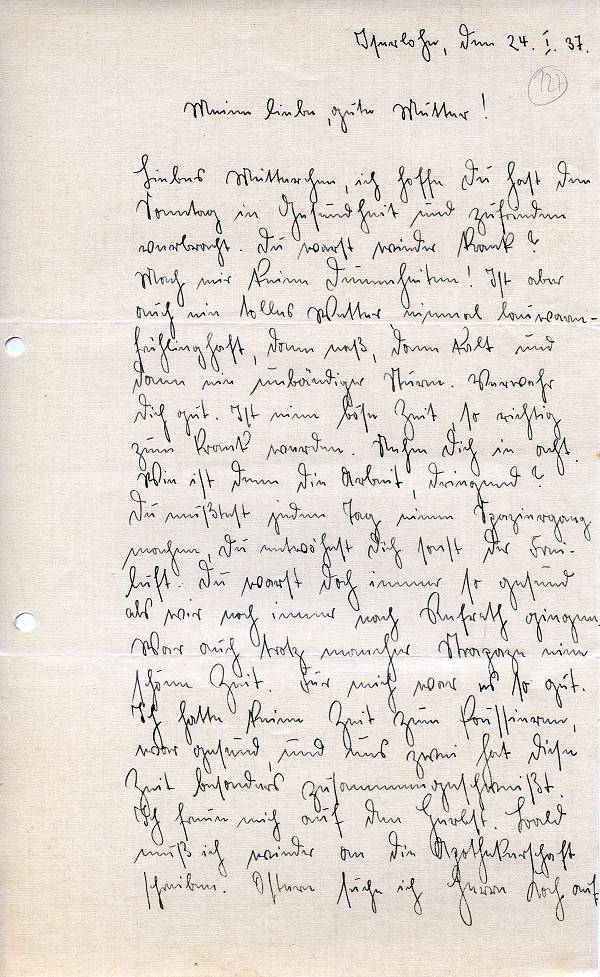 Iserlohn, den 24. I. 37.
127
Meine liebe, gute Mutter!
Liebes Mutterchen, ich hoffe Du hast den
Sonntag in Gesundheit und zufrieden
verbracht. Du warst wieder krank?
Mach mir keine Dummheiten! Ist aber
auch ein tolles Wetter einmal lauwarm-
frühlinghaft, dann naß, dann kalt und
dann ein unbändiger Sturm. Verwahr
Dich gut. Ist eine böse Zeit, so richtig
zum krank werden. Nehm Dich in acht.
Wie ist denn die Arbeit, dringend?
Du müßtest jeden Tag einen Spaziergang
machen, Du entwöhnst Dich sonst der Frei-
luft. Du warst doch immer so gesund
als wir noch immer nach Refrath gingen.
War auch trotz mancher Strapaze eine
schöne Zeit. Für mich war es so gut.
Ich hatte keine Zeit zum Poussieren,
war gesund, und uns zwei hat diese
Zeit besonders zusammengeschweißt.
Ich freue mich auf den Herbst. Bald
muß ich wieder an die Apothekerschaft
schreiben. Ostern suche ich Herrn Koch auf.